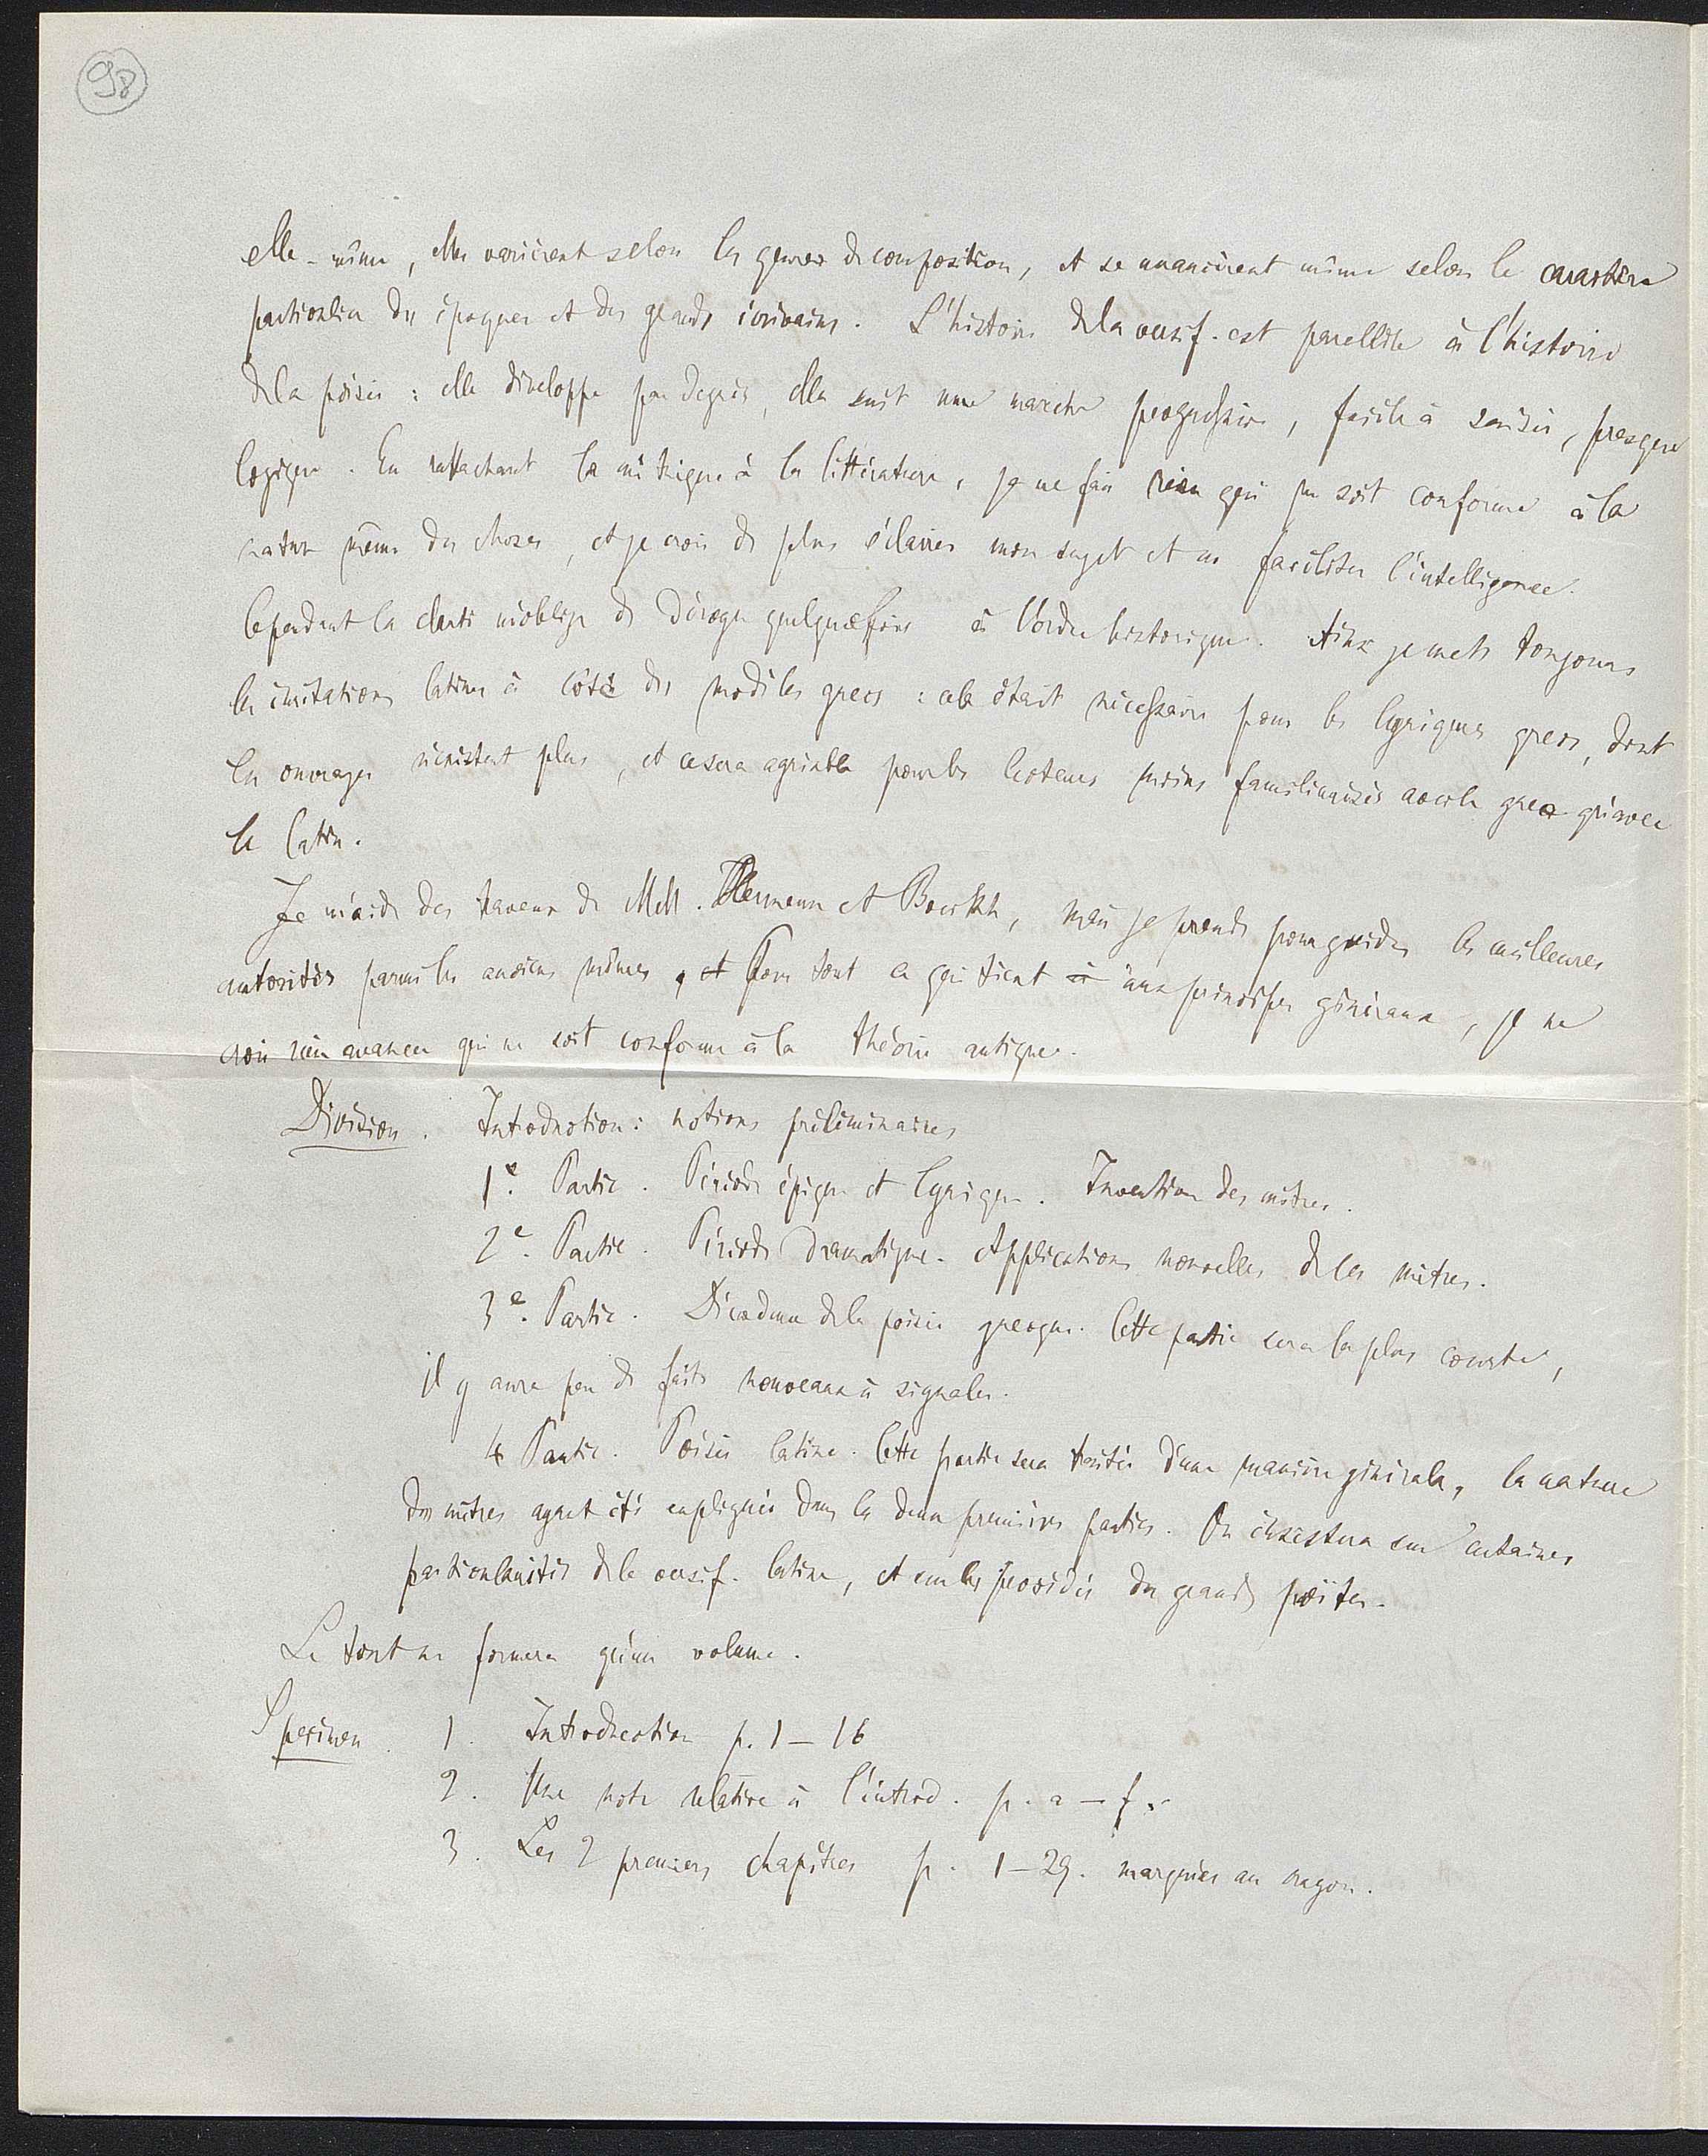 98
elle-même, elles varièrent selon les genres de composition, et se nuancèrent même selon le caractère
particulier des époques et des grands écrivains. L'histoire de la versif. est parallèle à l'histoire
de la poésie : elle développe par degrés, elle suit une marche progressive, facile à saisir, presque
logique. En rattachant la métrique à la littérature, je ne fais rien qui ne soit conforme à la
nature même des choses, et je crois de plus éclairer mon sujet et en faciliter l'intelligence.
Cependant la clarté m'oblige de déroger quelquefois à l'ordre historique. Ainsi je mets toujours
les imitations latines à côté des modèles grecs : cela était nécessaire pour les lyriques grecs, dont
les ouvrages n'existent plus, et ce sera agréable pour les lecteurs moins familiarisés avec le grec qu'avec
le latin.
Je m'aide des travaux de MM. Hermann et Boeckh, mais je prends pour guides les meilleures
autorités parmi les anciens mêmes, et pour tout ce qui tient à aux principes généraux, je ne
crois rien avancer qui ne soit conforme à la théorie antique.
Division. Introduction : notions préliminaires
1e. Partie. Période épique et lyrique. Invention des mètres.
2e. Partie. Période dramatique. Applications nouvelles de ces mètres.
3e. Partie. Décadence de la poésie grecque. Cette partie sera la plus courte,
il y aura peu de faits nouveaux à signaler.
4 Partie. Poésie latine. Cette partie sera traitée d'une manière générale, la nature
des mètres ayant été expliquée dans les deux premières parties. On insistera sur certaines
particularités de la versif. latine, et sur les procédés des grands poëtes.
Le tout ne formera qu'un volume.
Specimen. 1. Introduction p. 1 — 16
2. Une note relative à l'introd. p. a — f.
3. Les 2 premiers chapitres p. 1 — 29. marquées au crayon.